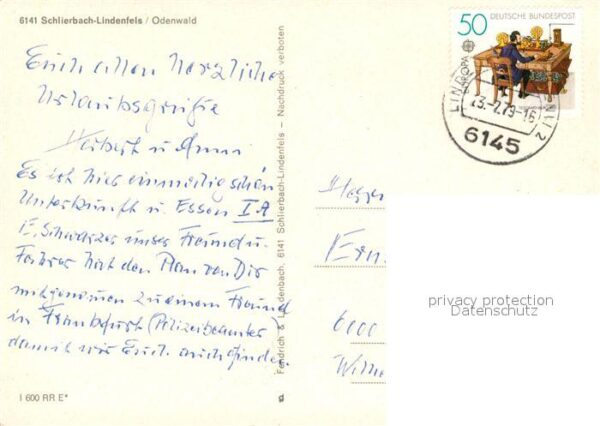 6141 Schlierbach-Lindenfels / Odenwald
Euch allen herzliche
Urlaubsgrüße
Herbert u Anna
Es ist hier einmalig schön
Unterkunft u. Essen I A
E. Schwarzer unser Freund u.
Fahrer hat den Plan von Dir
mitgenommen zu einem Freund
in Frankfurt (Polizeibeamter)
damit wir Euch auch finden.
I 600 RR E*
Fendrich & denbach, 6141 Schlierbach-Lindenfels – Nachdruck verboten
50 DEUTSCHE BUNDESPOST
EUROPA
LIND
79-16
6145
6000
privacy protection
Datenschutz